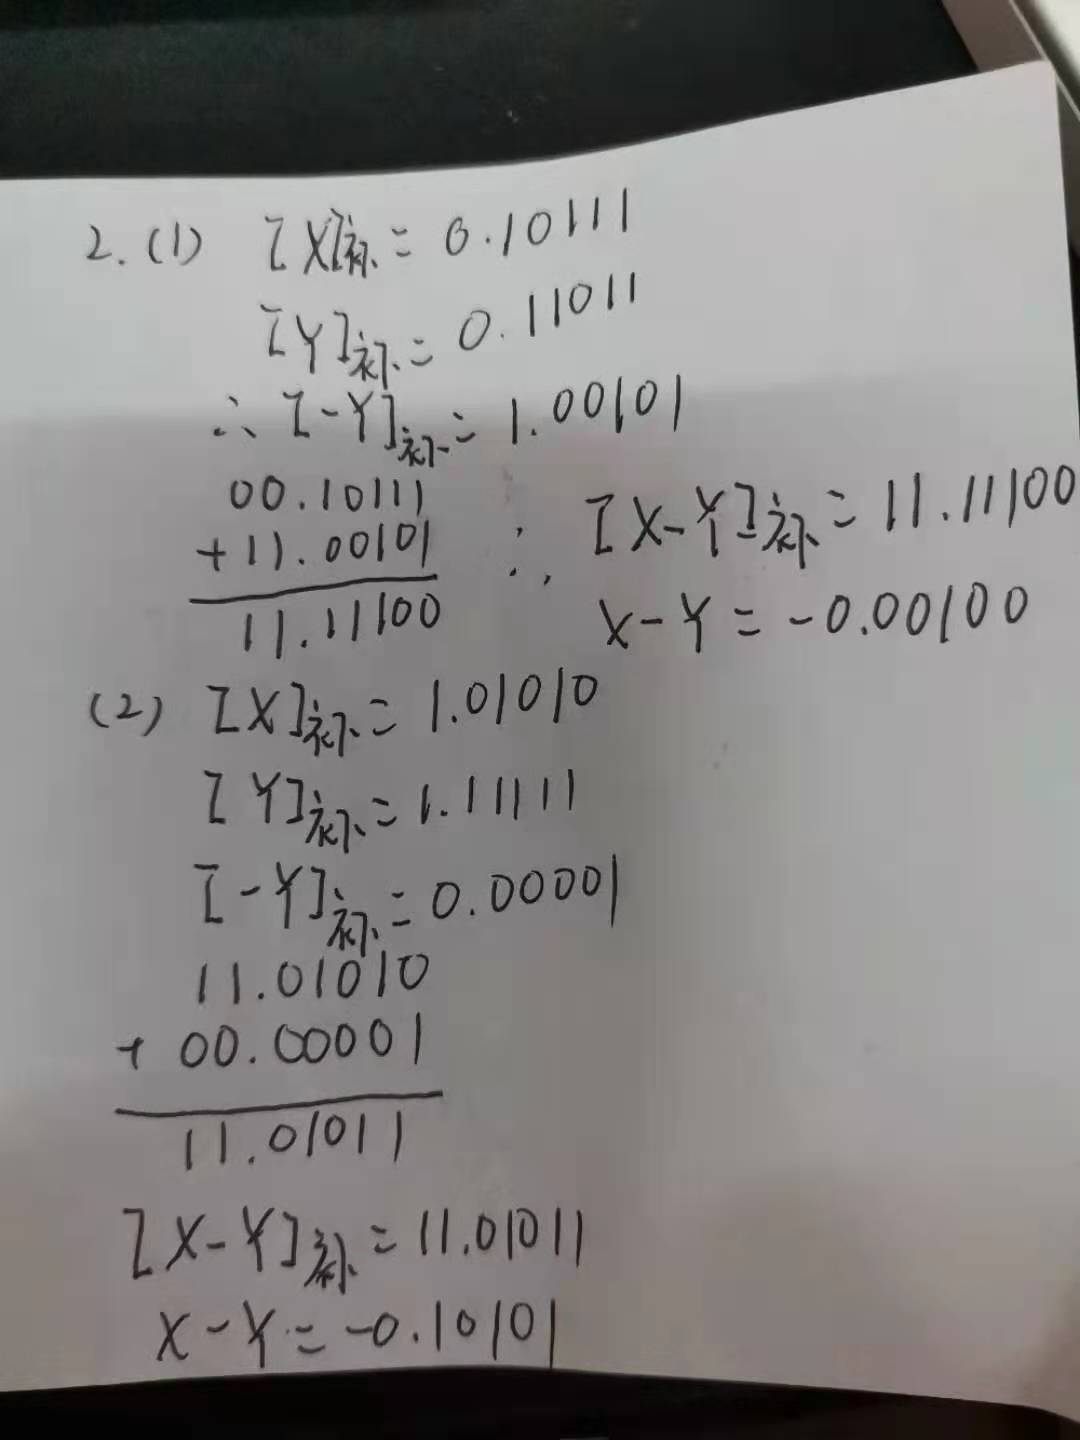 2.(1) [X]补=0.10111
[Y]补=0.11011
∴[-Y]补=1.00101
00.10111
+11.00101
11.11100
∴ [X-Y]补=11.11100
X-Y=-0.00100
(2) [X]补=1.01010
[Y]补=1.11111
[-Y]补=0.00001
11.01010
+ 00.00001
11.01011
[X-Y]补=11.01011
X-Y=-0.10101